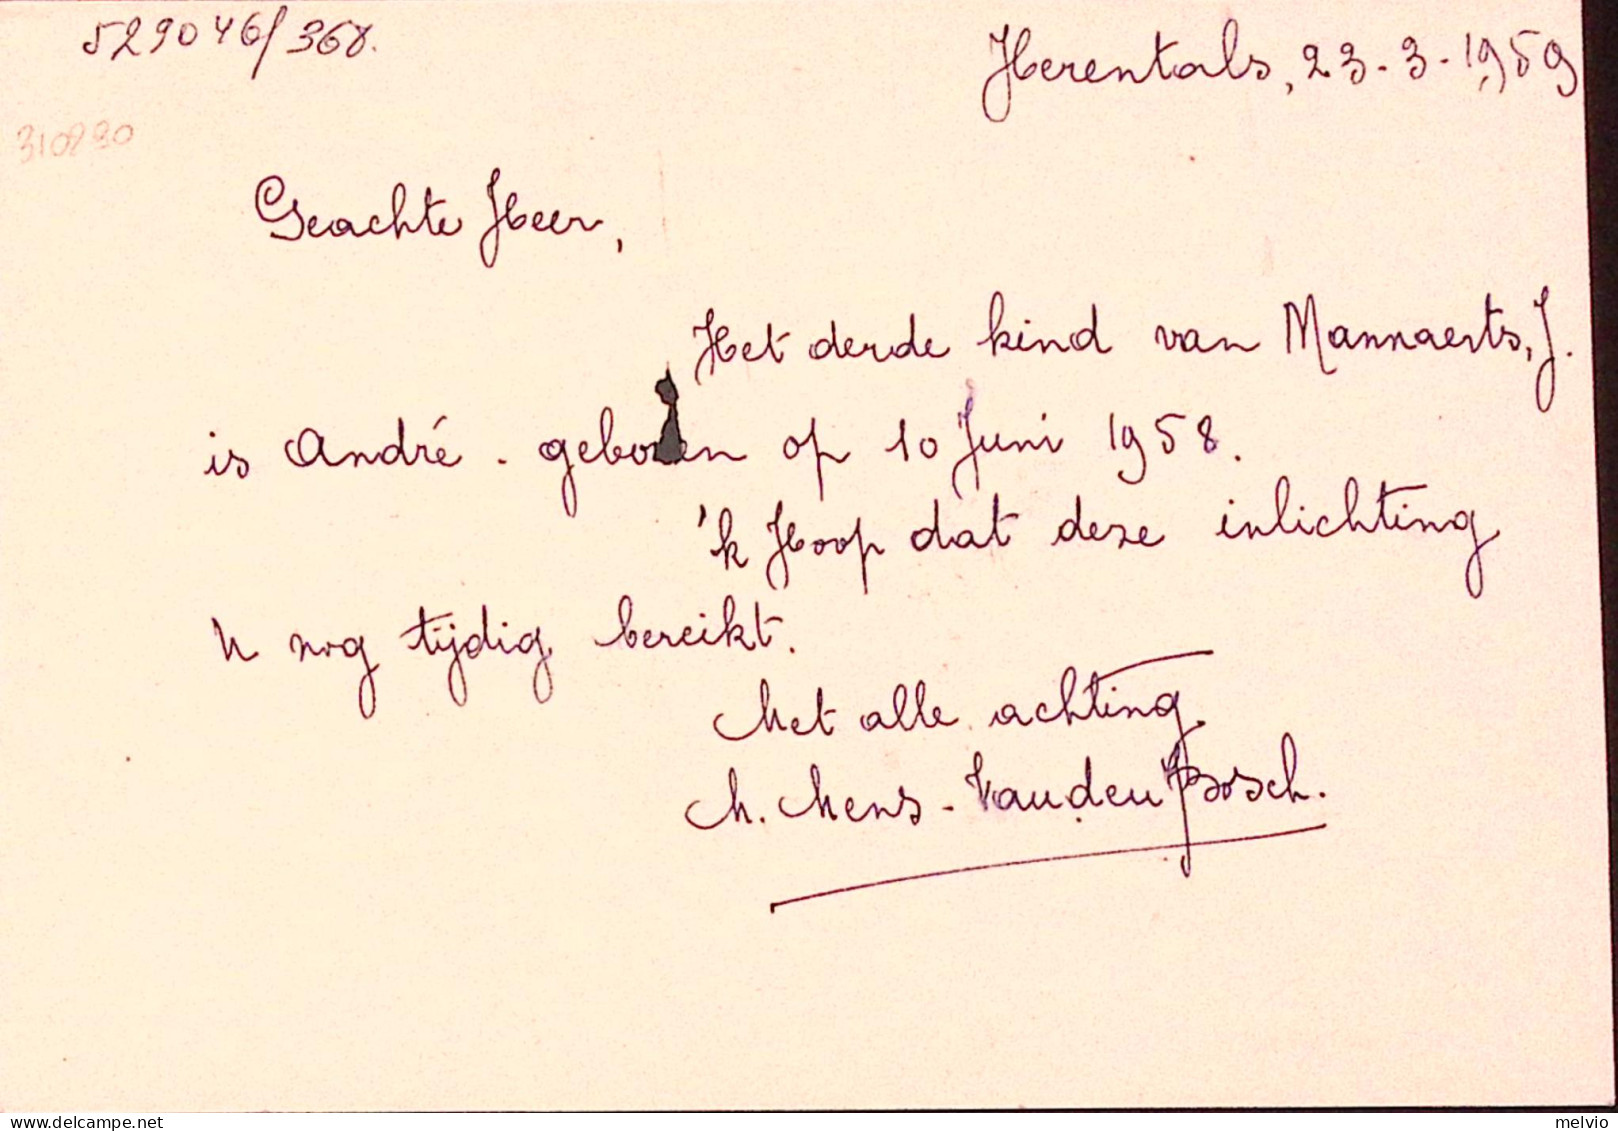 52 90 46/368.
Herentals, 23-3-1959
310230
Geachte Heer,
Het derde kind van Mannaerts, J.
is André. geboren op 10 Juni 1958.
'k Hoop dat deze inlichting
U nog tijdig bereikt.
Met alle achting,
M. Mens-Vanden Bosch.
melvio